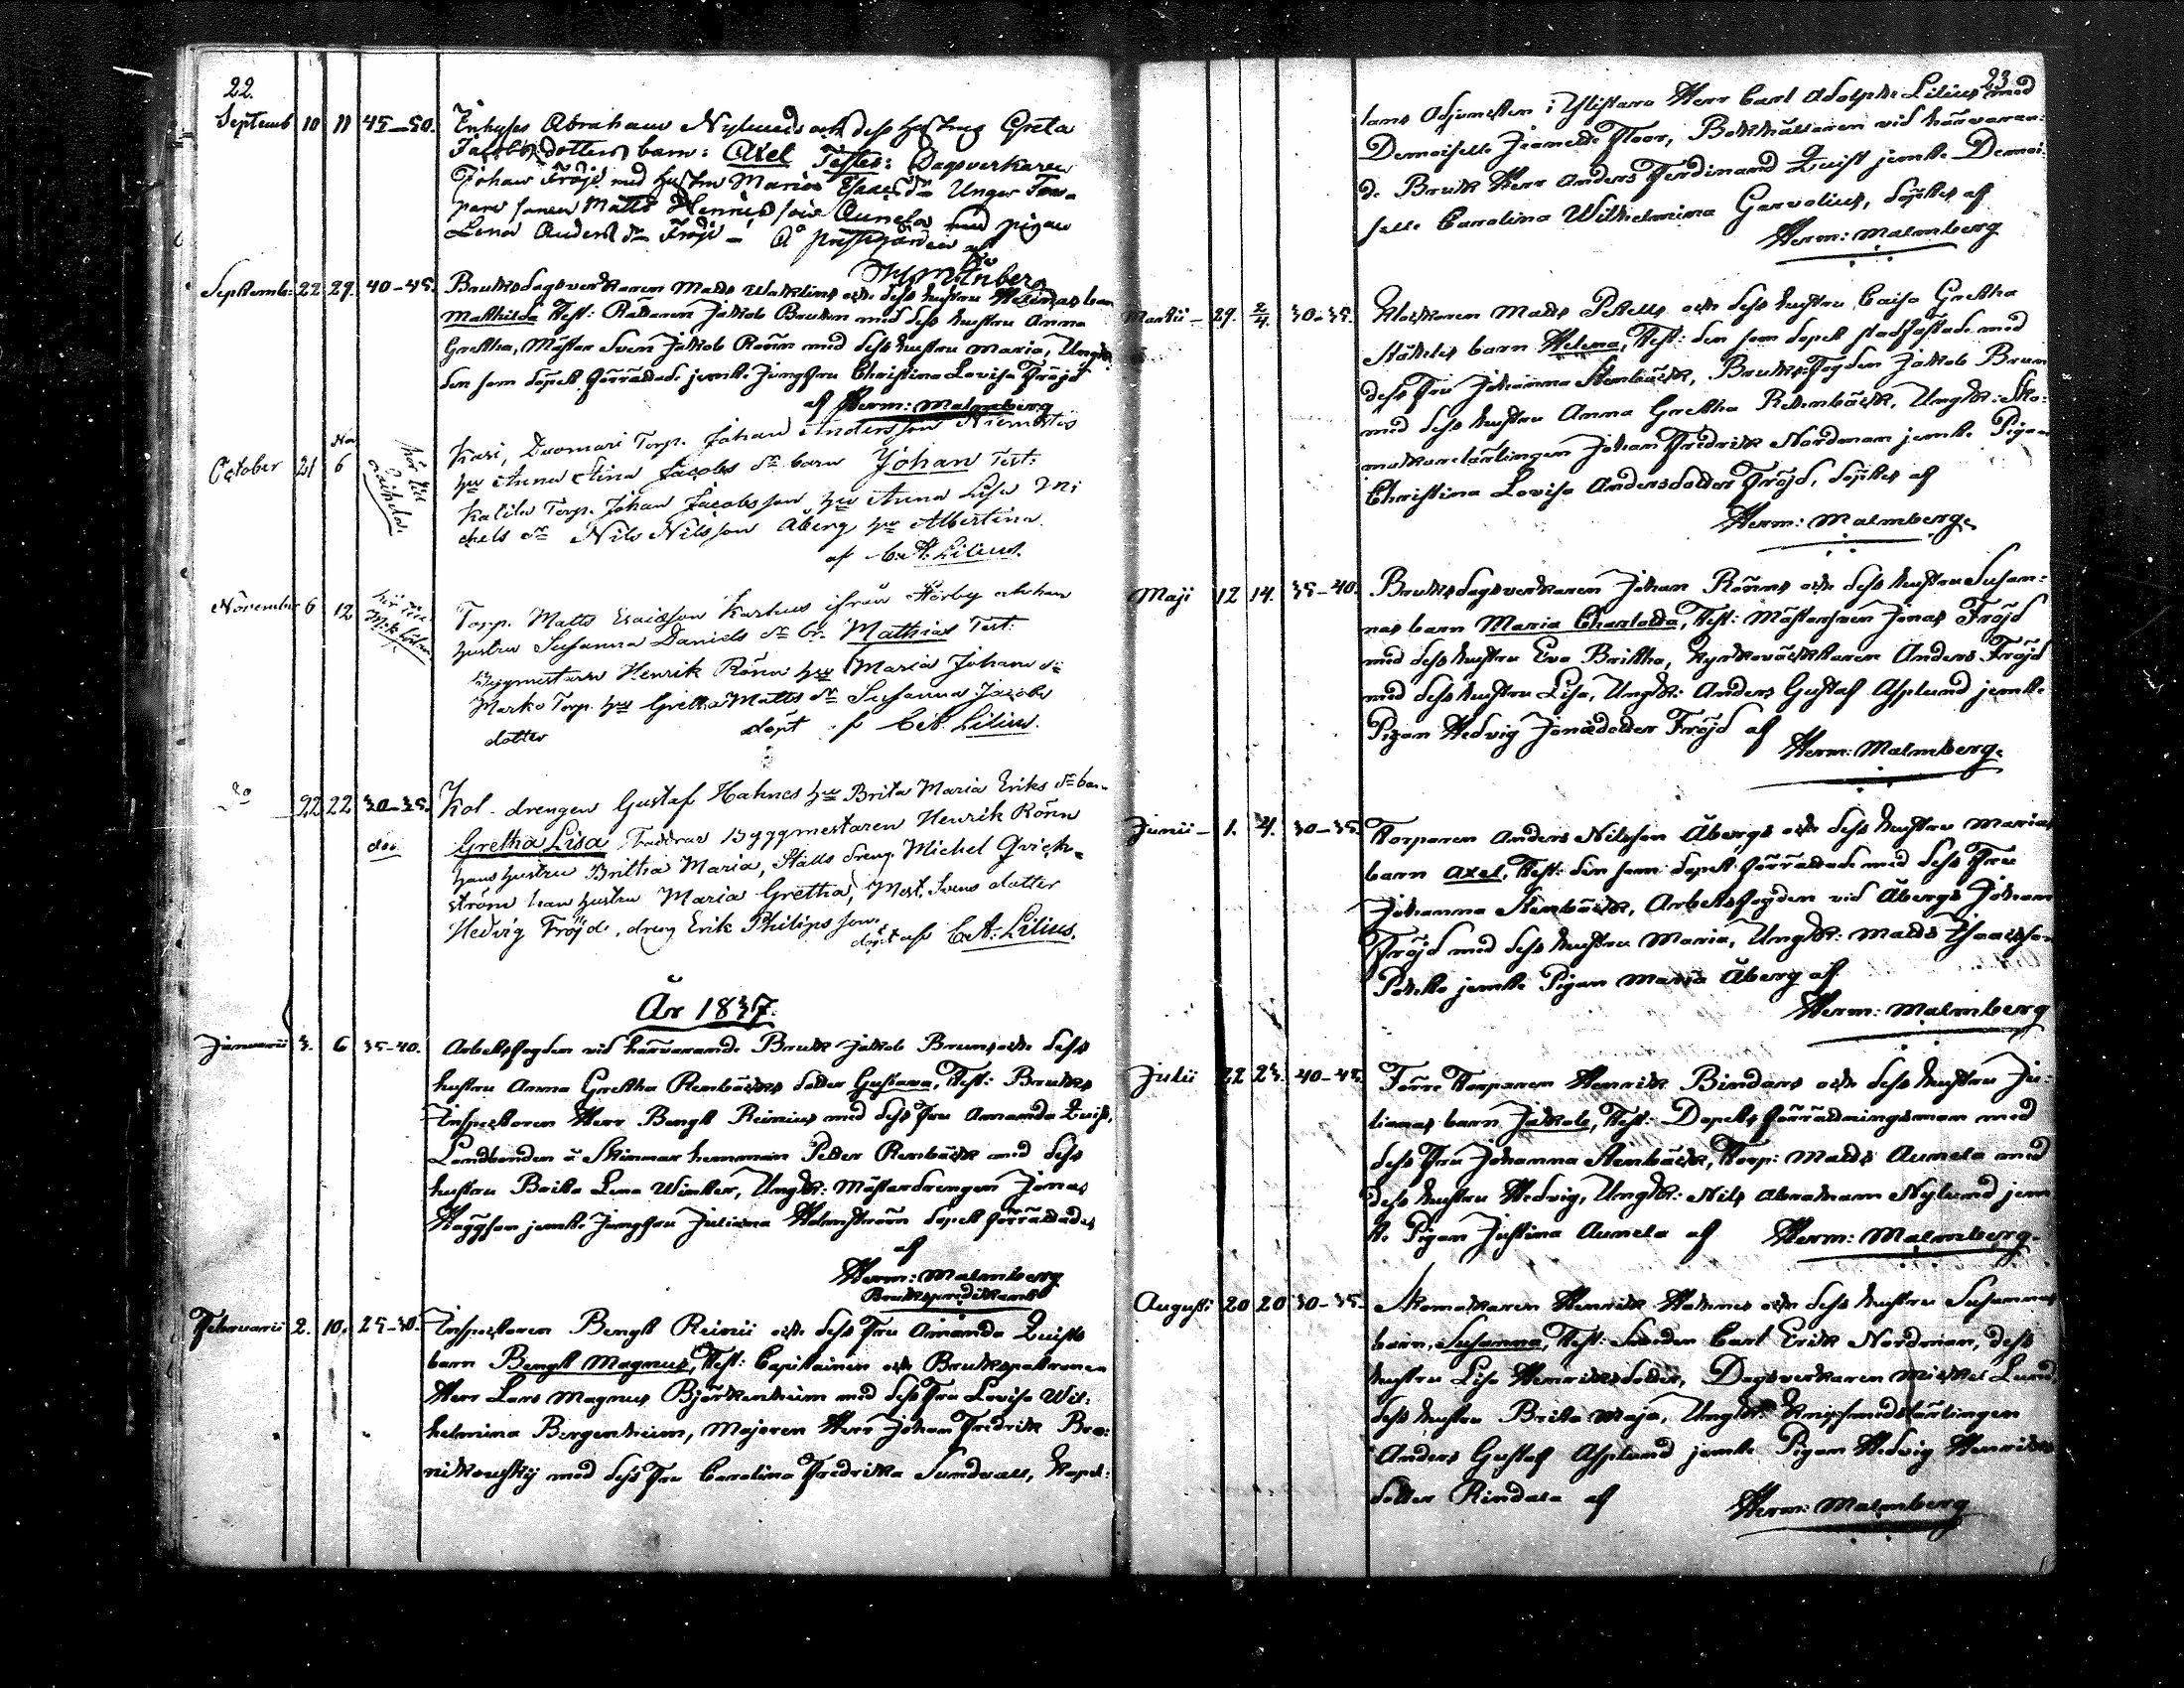 22.
Septemb 10 11 45-50. Inhyses Abraham Nylunds och dess hustru Greta
Jacobs dotters barn: Axel Testes: Dagsverkaren
Johan Fröjd med hustru Maria Esaiæ dr Ungar Tor-
pare sonen Matts Henricsson Aunela med pigan
Lena Anders dr Fröjd – Å prestgården af
Septemb: 22 29. 40-45. Bruksdagsverkaren Matts Wahlins och dess hustru Helenas barn
Mathilda Test: Rättaren Jakob Brunn med dess hustru Anna
Gretha, Mäster Sven Jakob Rönn med dess hustru Maria, Ungdr:
den som dopet förrättade jemte Jungfru Christina Lovisa Fröjd
af Herm: Malmberg
October 21 Nov 6 Johan Andersson
hu Anna Stina Jacobs dr barn Johan Test:
Torp. Johan Jacobsson hu Anna Lisa Mi
chels dr Nils Nilsson Åberg hu Albertina.
af C. A. Lilius.
November 6 12 Torp. Matts Isaicsson ifrån och han
hustru Susanna Daniels dr br. Mathias Test:
Byggmestaren Henrik Rönn hu Maria Johans dr
Marko Torp. hu Gretha Matts dr Susanna Jacobs
dotter döpt af C. A. Lilius.
do 22 22 30-35. Kol-drengen Gustaf Hahnes hu Brita Maria Eriks dr barn
do Gretha Lisa Faddrar Byggmestaren Henrik Rönn
hans hustru Britha Maria, Stalls dreng Michel Qvick-
ström hans hustru Maria Gretha, Mest. Svens dotter
Hedvig Fröjd, dreng Erik Philipsson.
döpt af C. A. Lilius.
År 1837.
Januarii 3. 6 35-40. Arbetsfogden vid härvarande Bruk Jakob Bruns och dess
hustru Anna Gretha Renbäcks dotter Gustava, Test: Bruks
Inspectoren Herr Bengt Reinius med dess Fru Amanda Quist,
Landbonden å Skinnar hemman Petter Renbäck med dess
hustru Brita Lena Winter, Ungdr: Mästerdrengen Jonas
Häggson jemte Jungfru Juliana Holmström dopet förrättades
af
Herm: Malmberg
Brukspredikant
Februarii 2. 10. 25-30. Inspectoren Bengt Reinii och dess Fru Amanda Quists
barn Bengt Magnus, Test: Capitainen och Brukspatronen
Herr Lars Magnus Björkenheim med dess Fru Lovisa Wil:
helmina Bergenheim, Majoren Herr Johan Fredrik Bro:
nikowskij med dess Fru Carolina Fredrika Sundvall, Kapel:
23.
lans Adjuncten i Ylistaro Herr Carl Adolph Lilius med
Demoiselle Jeanette Floor, Bokhållaren vid härvaran:
de Bruk Herr Anders Ferdinand Quist jemte Demoi:
selle Carolina Wilhelmina Garvolius, döptes af
Herm: Malmberg
Martii – 29. 2/4. 30-35. Klockaren Matts Pitells och dess hustru Caisa Gretha
barn Helena, Test: den som dopet med
dess Fru Johanna Stenbäck, Bruksfogden Jakob Brun
med dess hustru Anna Gretha Renbäck, Ungdr: Sko:
makarelärlingen Johan Fredrik Nordman jemte Pigan
Christina Lovisa Andersdotter Fröjd, döptes af
Herm: Malmberg.
Maji 12 14. 35-40. Bruksdagsverkaren Johan Rönns och dess hustru Susan:
nas barn Maria Charlotta, Test: Mästersven Jonas Fröjd
med dess hustru Eva Britha, Kyrkoväcktaren Anders Fröjd
med dess hustru Lisa, Ungdr: Anders Gustaf Asplund jemte
Pigan Hedvig Jonædotter Fröjd af
Herm: Malmberg.
Junii – 1. 4. 30-35. Torparen Anders Nilsson Åbergs och dess hustru Marias
barn Axel, Test: den som dopet förrättade med dess Fru
Johanna Stenbäck, Arbetsfogden vid Åbergs Johan
Fröjd med dess hustru Maria, Ungdr: Matts Isaacsson
jemte Pigan Maria Åberg af
Herm: Malmberg
Julii 22 23. 40-45. Förre Torparen Henrik Bindars och dess hustru Ju:
lianas barn Jakob, Test: Dopets förrättningsman med
dess Fru Johanna Stenbäck, Torp: Matts Aunela med
dess hustru Hedvig, Ungdr: Nils Abraham Nylund jem
te Pigan Justina Aunela af Herm: Malmberg.
Augusti 20 20 30-35. Skomakaren Henrik Hahnes och dess hustru Susannas
barn, Susanna, Test: Smeden Carl Erik Nordman, dess
hustru Lisa Henricsdotter, Dagsverkaren Mickel Lund,
dess hustru Brita Maja, Ungdr: Knipsmedslärlingen
Anders Gustaf Asplund jemte Pigan Hedvig Henriks
dotter Rindala af Herm: Malmberg